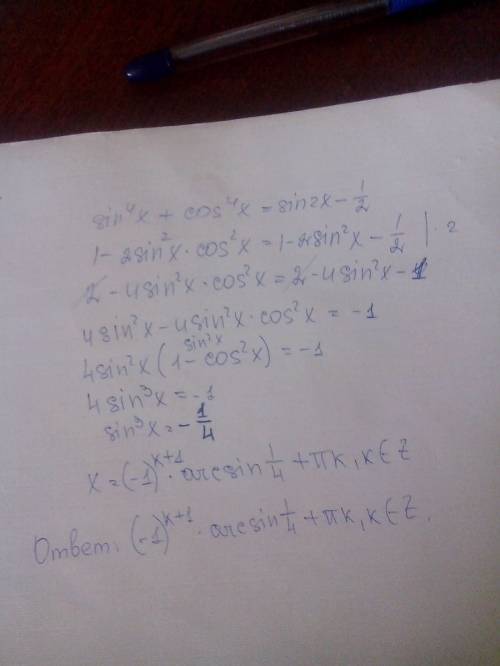 sin⁴x + cos⁴x = sin2x - 1/2
1 - 2sin²x · cos²x = 1 - 2sin²x - 1/2 | · 2
2 - 4sin²x · cos²x = 2 - 4sin²x - 1
4sin²x - 4sin²x · cos²x = -1
sin²x
4sin²x (1 - cos²x) = -1
4sin³x = -1
sin³x = - 1/4
x = (-1)ᵏ⁺¹ · arcsin 1/4 + πk, k ∈ Z
Ответ: (-1)ᵏ⁺¹ · arcsin 1/4 + πk, k ∈ Z.